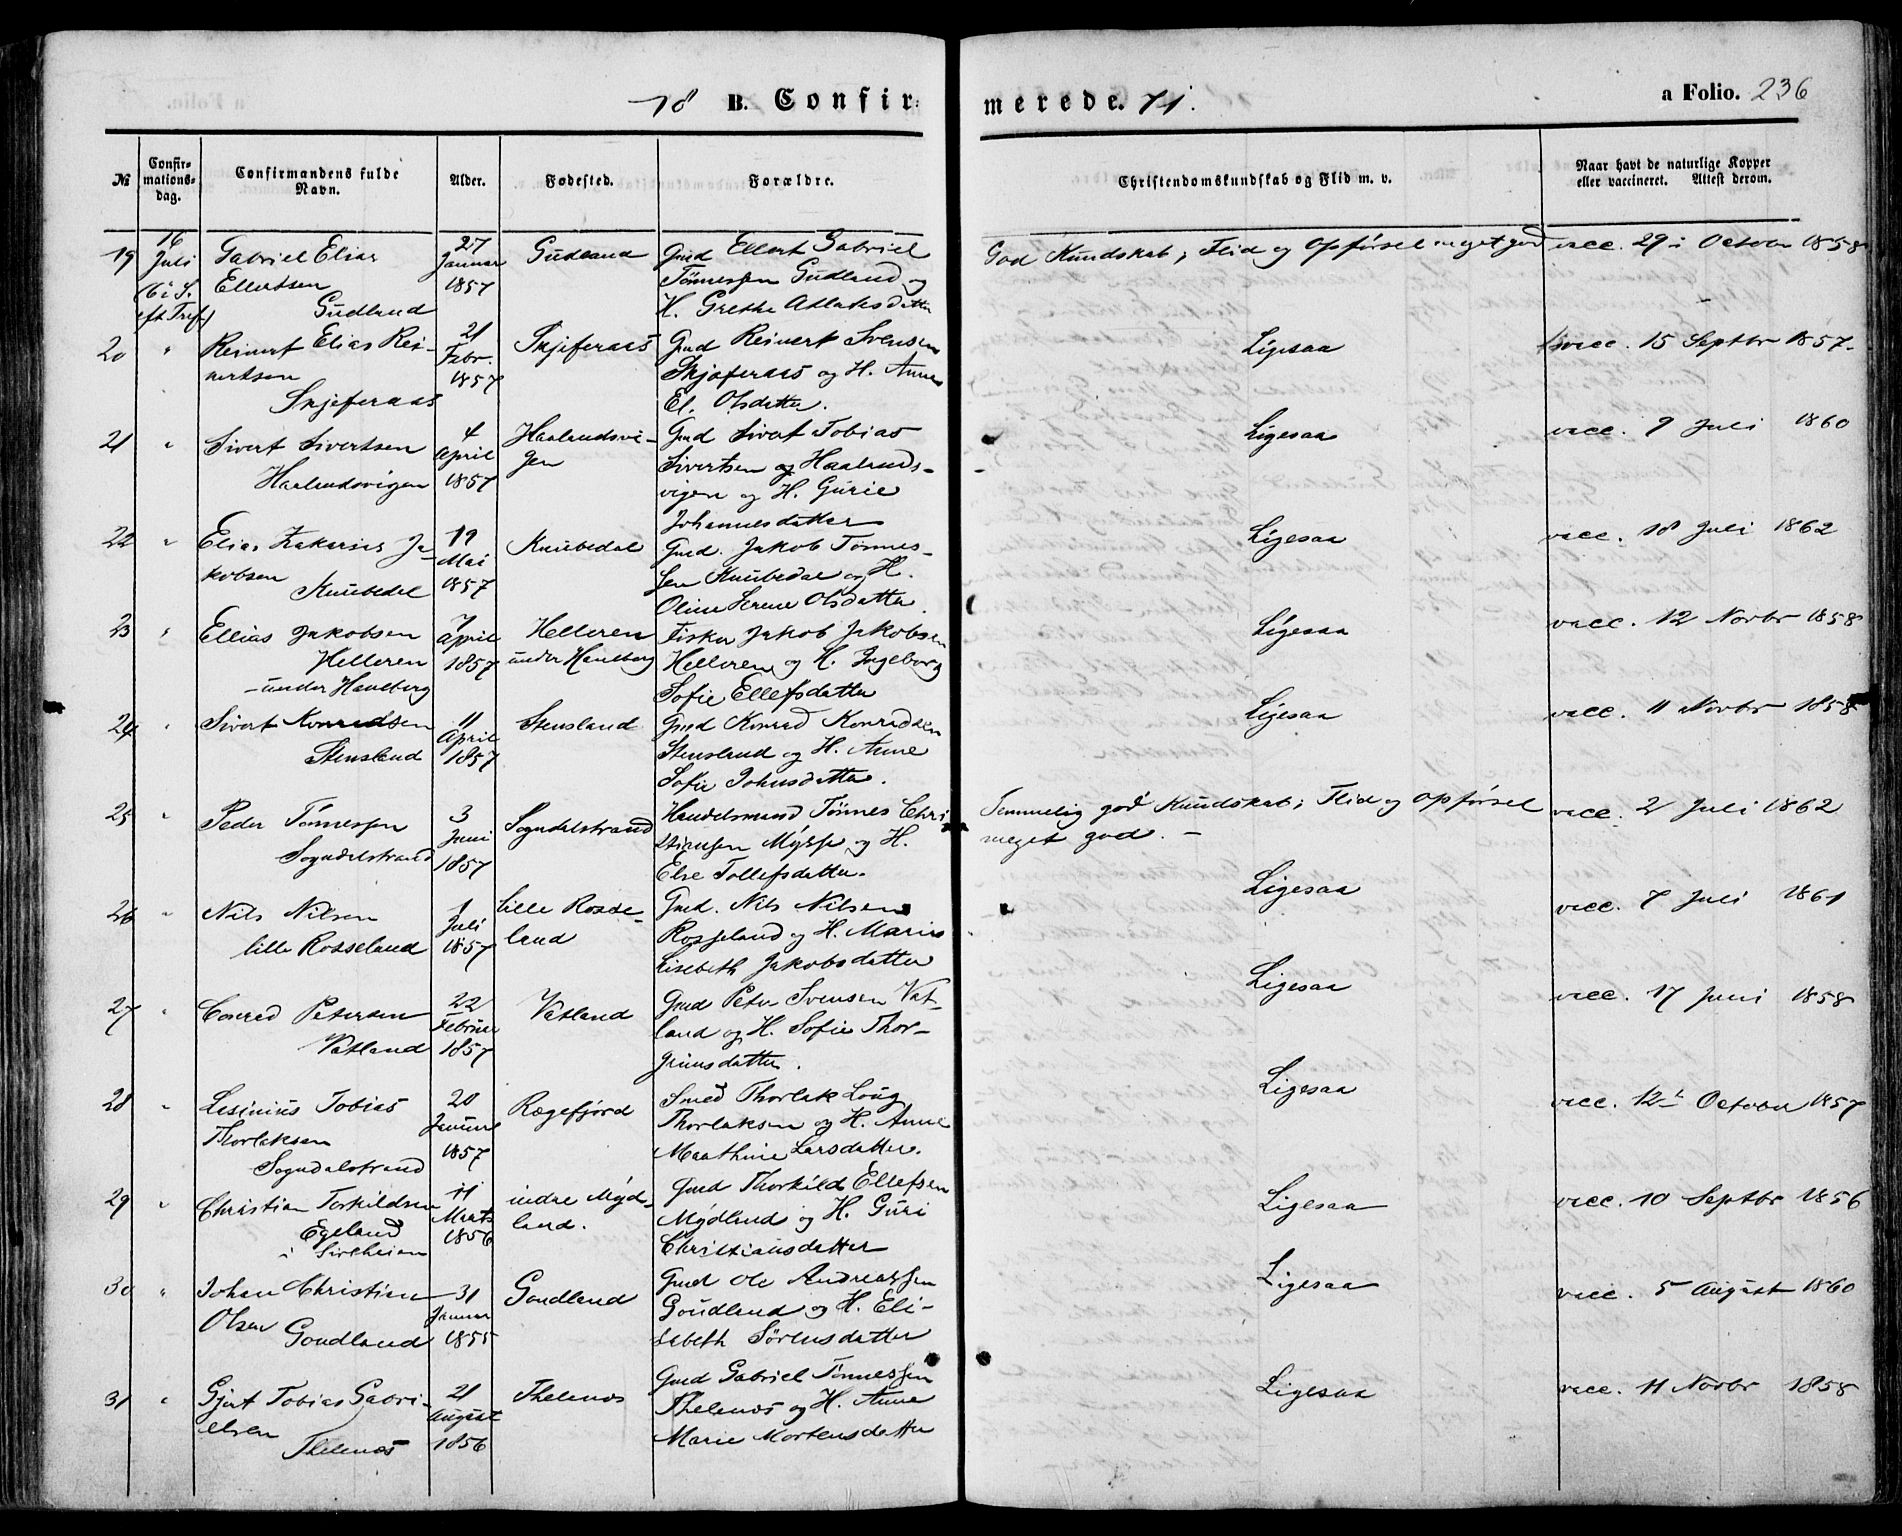 18 B. Confirmerede. 71. a Folio. 236
№ Confirmationsdag. Confirmandens fulde Navn. Alder. Fødested. Forældre. Christendomskundskab og Flid m. v. Naar havt de naturlige Kopper eller vaccineret. Attest derom.
19 16 Juli (6 i S. eft Tref.) Gabriel Elias Ellertsen Gudland 27 Januar 1857 Gudland Gmd Ellert Gabriel Tønnessen Gudland og H. Grethe Atlaksdatter God Kundskab, Flid og Opførsel meget god vacc. 29 i October 1858
20 " Reinert Elias Reinertsen Skjeferaas 21 Febr. 1857 Skjeferaas Gmd Reinert Svensen Skjeferaas og H. Anne El. Olsdatter. Ligesaa vacc. 15 Septbr 1857
21 " Sivert Sivertsen Haalandsvigen 4 April 1857 Haalandsvigen Gmd Sivert Tobias Sivertsen og Haalandsvigen og H. Gurie Johannesdatter Ligesaa vacc. 9 Juli 1860
22 " Elias Zakarias Jakobsen Knubedal 19 Mai 1857 Knubedal Gmd. Jakob Tønnessen Knubedal og H. Oline Serine Olsdatter. Ligesaa vacc. 18 Juli 1862
23 " Ellias Jakobsen Helleren under Haneberg 7 April 1857 Helleren under Haneberg Fisker Jakob Jakobsen Helleren og H. Ingeborg Sofie Ellefsdatter Ligesaa vacc. 12 Novbr 1858
24 " Sivert Konradsen Stensland 11 April 1857 Stensland Gmd Konrad Konradsen Stensland og H. Anne Sofie Johnsdatter. Ligesaa vacc. 11 Novbr 1858
25 " Peder Tønnessen Sogndalstrand 3 Juni 1857 Sogndalstrand Handelsmand Tønnes Christiansen Mysse og H. Else Tollefsdatter. Temmelig god Kundskab, Flid og Opførsel meget god. — vacc. 2 Juli 1862
26 " Nils Nilsen lille Rosseland 1 Juli 1857 lille Rosseland Gmd. Nils Nilsen Rosseland og H. Marie Lisebeth Jakobsdatter Ligesaa vacc. 7 Juli 1861
27 " Conrad Petersen Vatland 22 Februar 1857 Vatland Gmd Peter Svensen Vatland og H. Sofie Thorgrimsdatter. Ligesaa vacc. 17 Juni 1858
28 " Lasinius Tobias Thorlaksen Sogndalstrand 20 Januar 1857 Rægefjord Smed Thorlak Loug Thorlaksen og H. Anne Maathine Larsdatter. Ligesaa vacc. 12 October 1857
29 " Christian Torkildsen Egeland i Sireheien 11 Marts 1856 indre Mydland. Gmd Thorkild Ellefsen Mydland og H. Guri Christiansdatter Ligesaa vacc. 10 Septbr 1856
30 " Johan Christian Olsen Goudland 31 Januar 1855 Goudland Gmd Ole Andreassen Goudland og H. Elisabeth Sørensdatter Ligesaa vacc. 5 August 1860
31 " Gjert Tobias Gabrielsen Thelenæs 21 August 1856 Thelenæs Gmd Gabriel Tønnessen Thelenæs og H. Anne Marie Mortensdatter Ligesaa vacc. 11 Novbr 1858